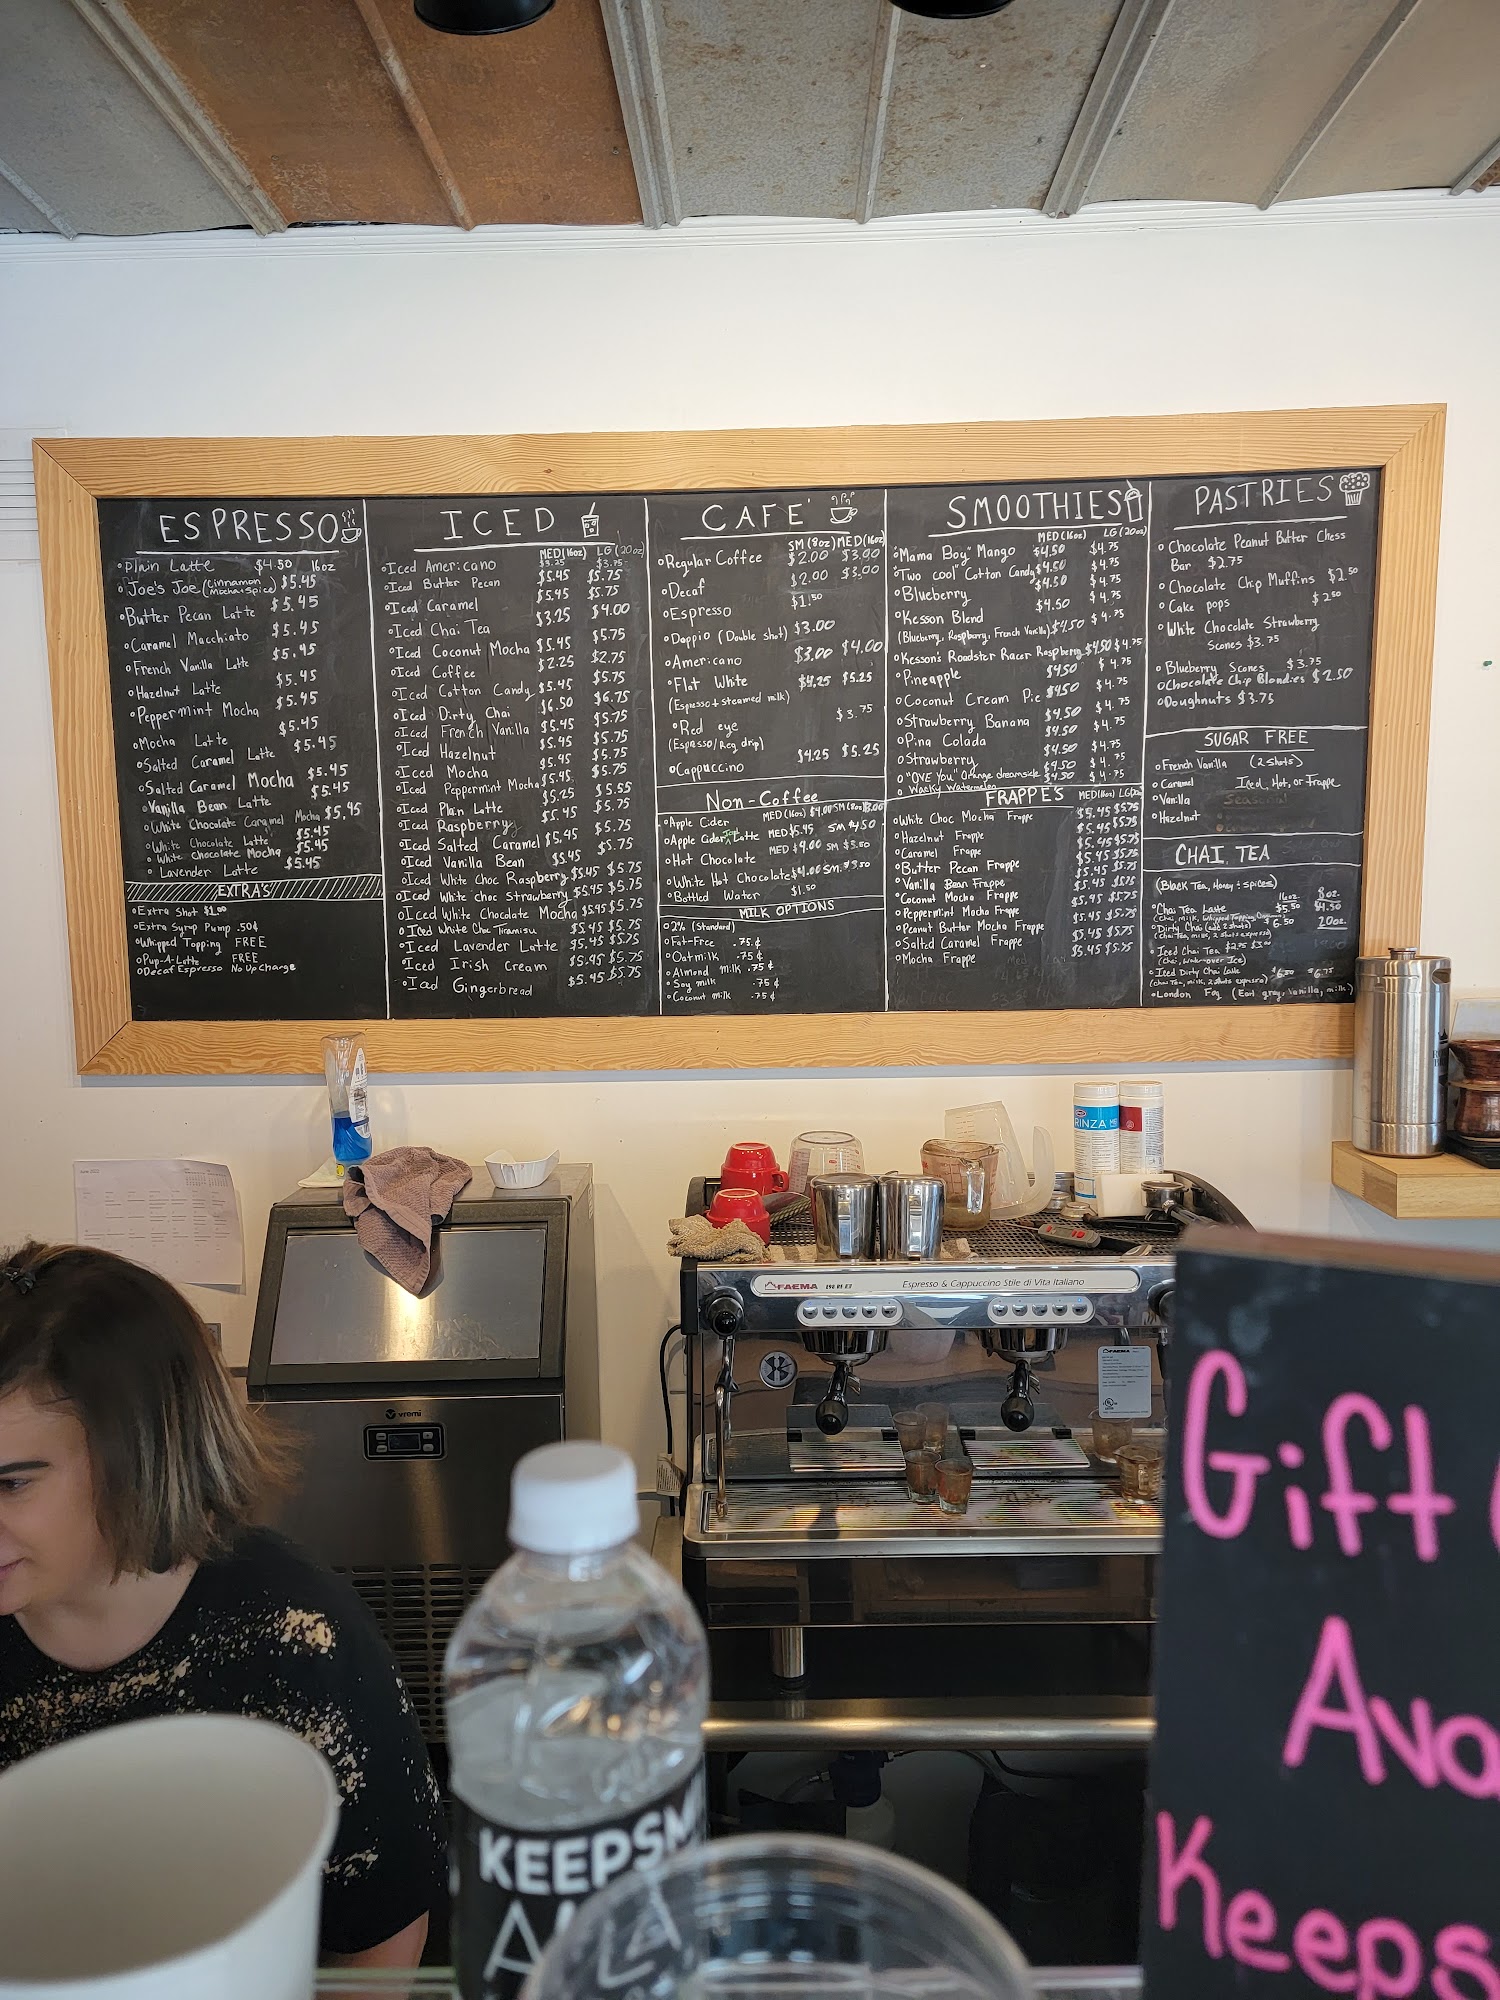 ESPRESSO
Plain Latte $4.50 16oz
Joe's Joe (Cinnamon Mocha+spice) $5.45
Butter Pecan Latte $5.45
Caramel Macchiato $5.45
French Vanilla Latte $5.45
Hazelnut Latte $5.45
Peppermint Mocha $5.45
Mocha Latte $5.45
Salted Caramel Latte $5.45
Salted Caramel Mocha $5.45
Vanilla Bean Latte $5.45
White Chocolate Caramel Mocha $5.45
White Chocolate Latte $5.45
White Chocolate Mocha $5.45
Lavender Latte $5.45
EXTRA'S
Extra Shot $1.00
Extra Syrup Pump .50¢
Whipped Topping FREE
Pup-A-Latte FREE
Decaf Espresso No Up Charge
ICED
MED(16oz) LG(20oz)
Iced Americano $3.25 $3.75
Iced Butter Pecan $5.45 $5.75
Iced Caramel $5.45 $5.75
Iced Chai Tea $3.25 $4.00
Iced Coconut Mocha $5.45 $5.75
Iced Coffee $2.25 $2.75
Iced Cotton Candy $5.45 $5.75
Iced Dirty Chai $6.50 $6.75
Iced French Vanilla $5.45 $5.75
Iced Hazelnut $5.45 $5.75
Iced Mocha $5.45 $5.75
Iced Peppermint Mocha $5.45 $5.75
Iced Plain Latte $5.25 $5.55
Iced Raspberry $5.45 $5.75
Iced Salted Caramel $5.45 $5.75
Iced Vanilla Bean $5.45 $5.75
Iced White Choc Raspberry $5.45 $5.75
Iced White choc Strawberry $5.45 $5.75
Iced White Chocolate Mocha $5.45 $5.75
Iced White Choc Tiramisu $5.45 $5.75
Iced Lavender Latte $5.45 $5.75
Iced Irish Cream $5.45 $5.75
Iced Gingerbread $5.45 $5.75
CAFE'
SM (8oz) MED(16oz)
Regular Coffee $2.00 $3.00
Decaf $2.00 $3.00
Espresso $1.50
Doppio (Double shot) $3.00
Americano $3.00 $4.00
Flat White $4.25 $5.25
(Espresso + steamed milk)
Red eye $3.75
(Espresso/Reg drip)
Cappuccino $4.25 $5.25
Non-Coffee
Apple Cider MED(16oz) $4.00 SM (8oz) $3.00
Apple Cider Latte MED $5.45 SM $4.50
Hot Chocolate MED $4.00 SM $3.50
White Hot Chocolate $4.00 SM. $3.50
Bottled Water $1.50
MILK OPTIONS
2% (Standard)
Fat-Free .75¢
Oatmilk .75¢
Almond milk .75¢
Soy milk .75¢
Coconut milk .75¢
SMOOTHIES
MED(16oz) LG (20oz)
"Mama Boy" Mango $4.50 $4.75
"Two cool" Cotton Candy $4.50 $4.75
Blueberry $4.50 $4.75
Kesson Blend $4.50 $4.75
(Blueberry, Raspberry, French Vanilla) $4.50 $4.75
Kesson's Roadster Racer Raspberry $4.50 $4.75
Pineapple $4.50 $4.75
Coconut Cream Pie $4.50 $4.75
Strawberry Banana $4.50 $4.75
Pina Colada $4.50 $4.75
Strawberry $4.50 $4.75
"OVE You" Orange dreamsicle $4.50 $4.75
Wacky Watermelon
FRAPPE'S MED(16oz) LG(20oz)
White Choc Mocha Frappe $5.45 $5.75
Hazelnut Frappe $5.45 $5.75
Caramel Frappe $5.45 $5.75
Butter Pecan Frappe $5.45 $5.75
Vanilla Bean Frappe $5.45 $5.75
Coconut Mocha Frappe $5.45 $5.75
Peppermint Mocha Frappe $5.45 $5.75
Peanut Butter Mocha Frappe $5.45 $5.75
Salted Caramel Frappe $5.45 $5.75
Mocha Frappe $5.45 $5.75
PASTRIES
Chocolate Peanut Butter Chess
Bar $2.75
Chocolate Chip Muffins $2.50
Cake pops $2.50
White Chocolate Strawberry
Scones $3.75
Blueberry Scones $3.75
Chocolate Chip Blondies $2.50
Doughnuts $3.75
SUGAR FREE
French Vanilla (2 Shots)
Caramel Iced, Hot, or Frappe
Vanilla Seasonal
Hazelnut
CHAI TEA
(Black Tea, Honey + spices)
16oz. 8oz.
Chai Tea Latte $5.50 $4.50
(Chai, milk, Whipped Topping, Cinnamon)
Dirty Chai (add 2 shots) $6.50 20oz.
(Chai tea, milk, 2 shots espresso)
Iced Chai Tea $2.75 $3.00
(Chai, water over Ice)
Iced Dirty Chai Latte $6.50 $6.75
(Chai Tea, milk, 2 shots espresso)
London Fog (Earl gray, Vanilla, milk)
RINZA
FAEMA
Espresso & Cappuccino Stile di Vita Italiano
FAEMA
vremi
KEEPSM
Gift
Ava
Keeps